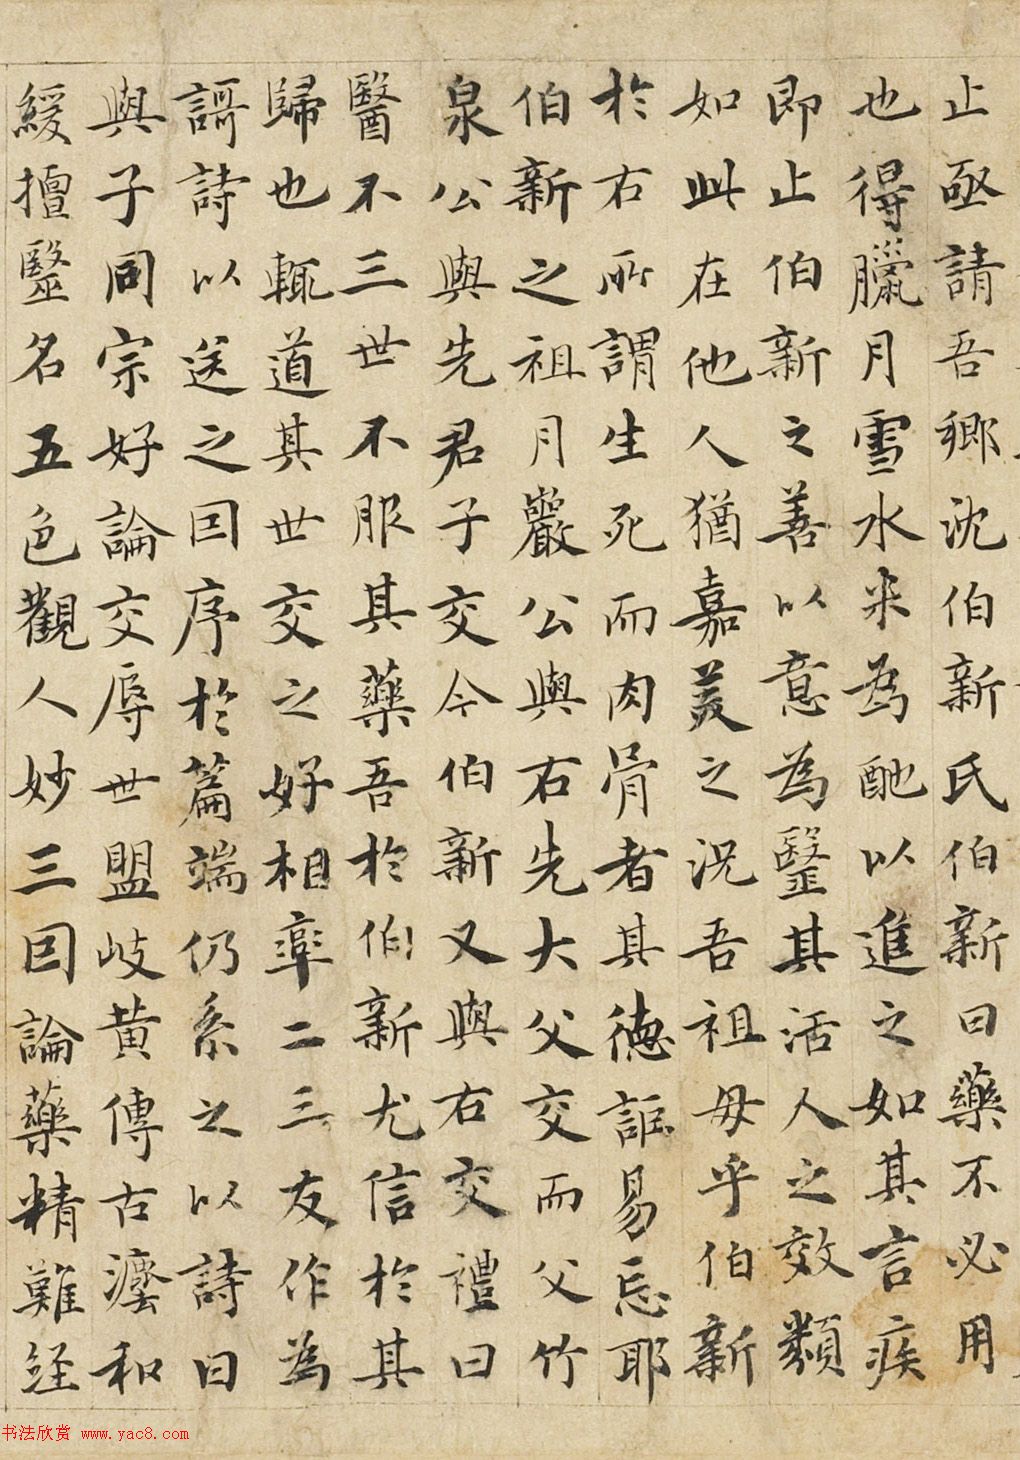 止亟請吾鄉沈伯新氏伯新曰藥不必用
也得臘月雪水米為酏以進之如其言疾
即止伯新之善以意為毉其活人之效類
如此在他人猶嘉美之況吾祖母乎伯新
於右所謂生死而肉骨者其德詎易忘耶
伯新之祖月巖公與右先大父交而父竹
泉公與先君子交今伯新又與右交禮曰
醫不三世不服其藥吾於伯新尤信於其
歸也輒道其世交之好相率二三友作為
謌詩以送之因序於篇端仍系之以詩曰
與子同宗好論交辱世盟岐黄傳古瀍和
緩擅毉名五色觀人妙三因論藥精難經
书法欣赏 www.yac8.com